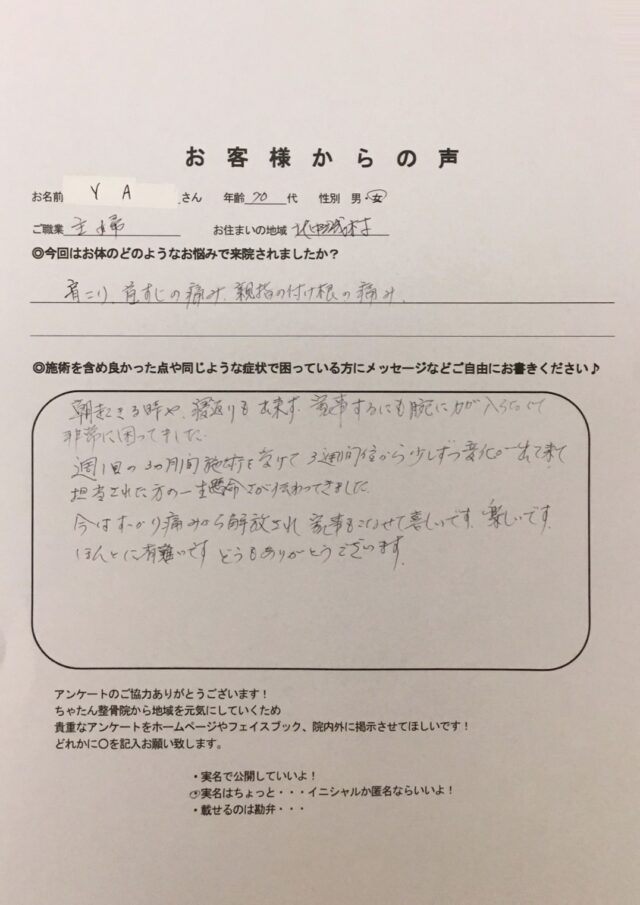 お客様からの声
お名前 Y A さん 年齢 70 代 性別 男・女
ご職業 主婦 お住まいの地域 北中城村
◎今回はお体のどのようなお悩みで来院されましたか？
肩こり、首すじの痛み、親指の付け根の痛み、
◎施術を含め良かった点や同じような症状で困っている方にメッセージなどご自由にお書きください♪
朝起きる時や、寝返りも出来ず、家事するにも腕に力が入らなくて
非常に困ってました。
週1回の3ヵ月間施術を受けて3週間位から少しずつ変化が出て来て
担当された方の一生懸命さが伝わってきました。
今はすっかり痛みから解放され 家事もこなせて喜しいです、楽しいです。
ほんとに有難いです どうもありがとうございます。
アンケートのご協力ありがとうございます！
ちゃたん整骨院から地域を元気にしていくため
貴重なアンケートをホームページやフェイスブック、院内外に掲示させてほしいです！
どれかに〇を記入お願い致します。
・実名で公開していいよ！
・実名はちょっと・・・イニシャルか匿名ならいいよ！
・載せるのは勘弁・・・